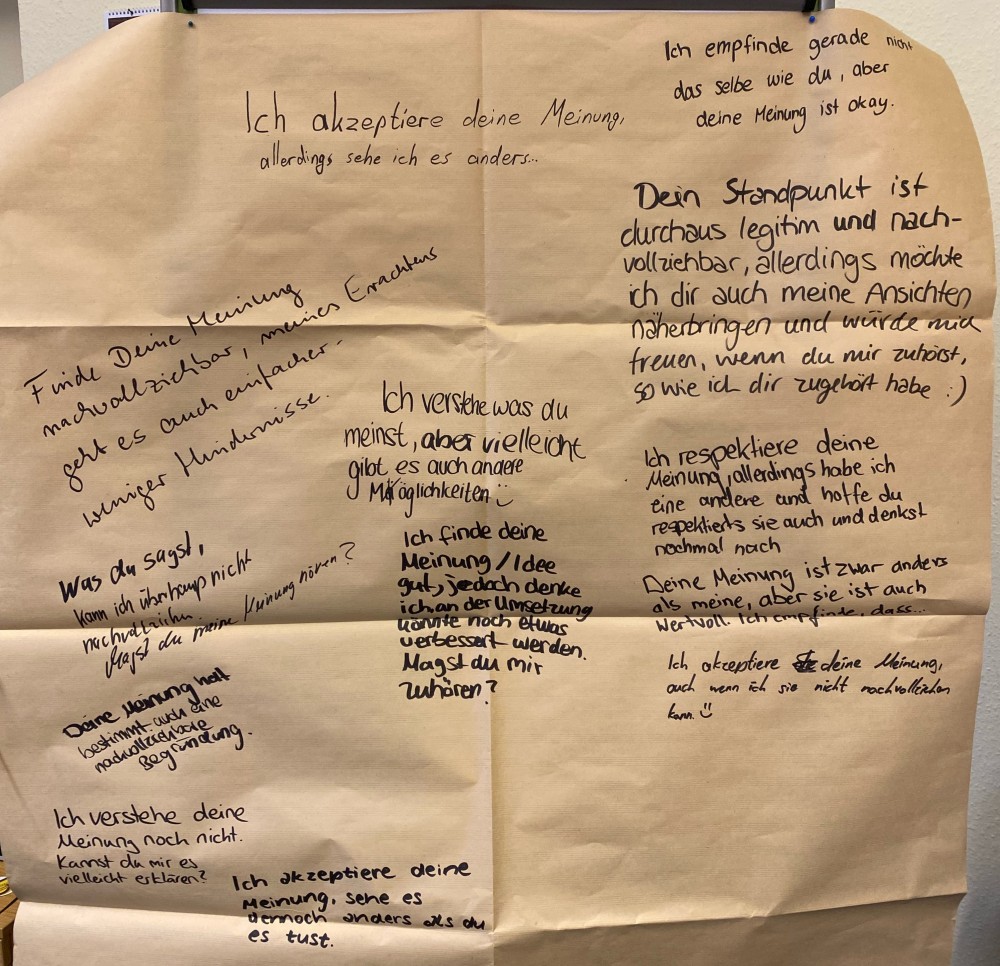 Ich akzeptiere deine Meinung,
allerdings sehe ich es anders...
Ich empfinde gerade nicht
das selbe wie du, aber
deine Meinung ist okay.
Dein Standpunkt ist
durchaus legitim und nach-
vollziehbar, allerdings möchte
ich dir auch meine Ansichten
näherbringen und würde mich
freuen, wenn du mir zuhörst,
so wie ich dir zugehört habe :)
Finde Deine Meinung
nachvollziehbar, meines Erachtens
geht es auch einfacher -
weniger Hindernisse.
Ich verstehe was du
meinst, aber vielleicht
gibt es auch andere
Möglichkeiten
Ich respektiere deine
Meinung, allerdings habe ich
eine andere und hoffe du
respektierts sie auch und denkst
nochmal nach
Was du sagst,
kann ich überhaup nicht
nachvollziehn.
Magst du meine Meinung hören?
Ich finde deine
Meinung/Idee
gut, jedoch denke
ich an der Umsetzung
könnte noch etwas
verbessert werden.
Magst du mir
zuhören?
Deine Meinung ist zwar anders
als meine, aber sie ist auch
wertvoll. Ich empfinde, dass...
Ich akzeptiere deine Meinung,
auch wenn ich sie nicht nachvollziehen
kann.
Deine Meinung hat
bestimmt auch eine
nachvollziehbare
Begründung.
Ich verstehe deine
Meinung noch nicht.
Kannst du mir es
vielleicht erklären?
Ich akzeptiere deine
Meinung, sehe es
dennoch anders als du
es tust.